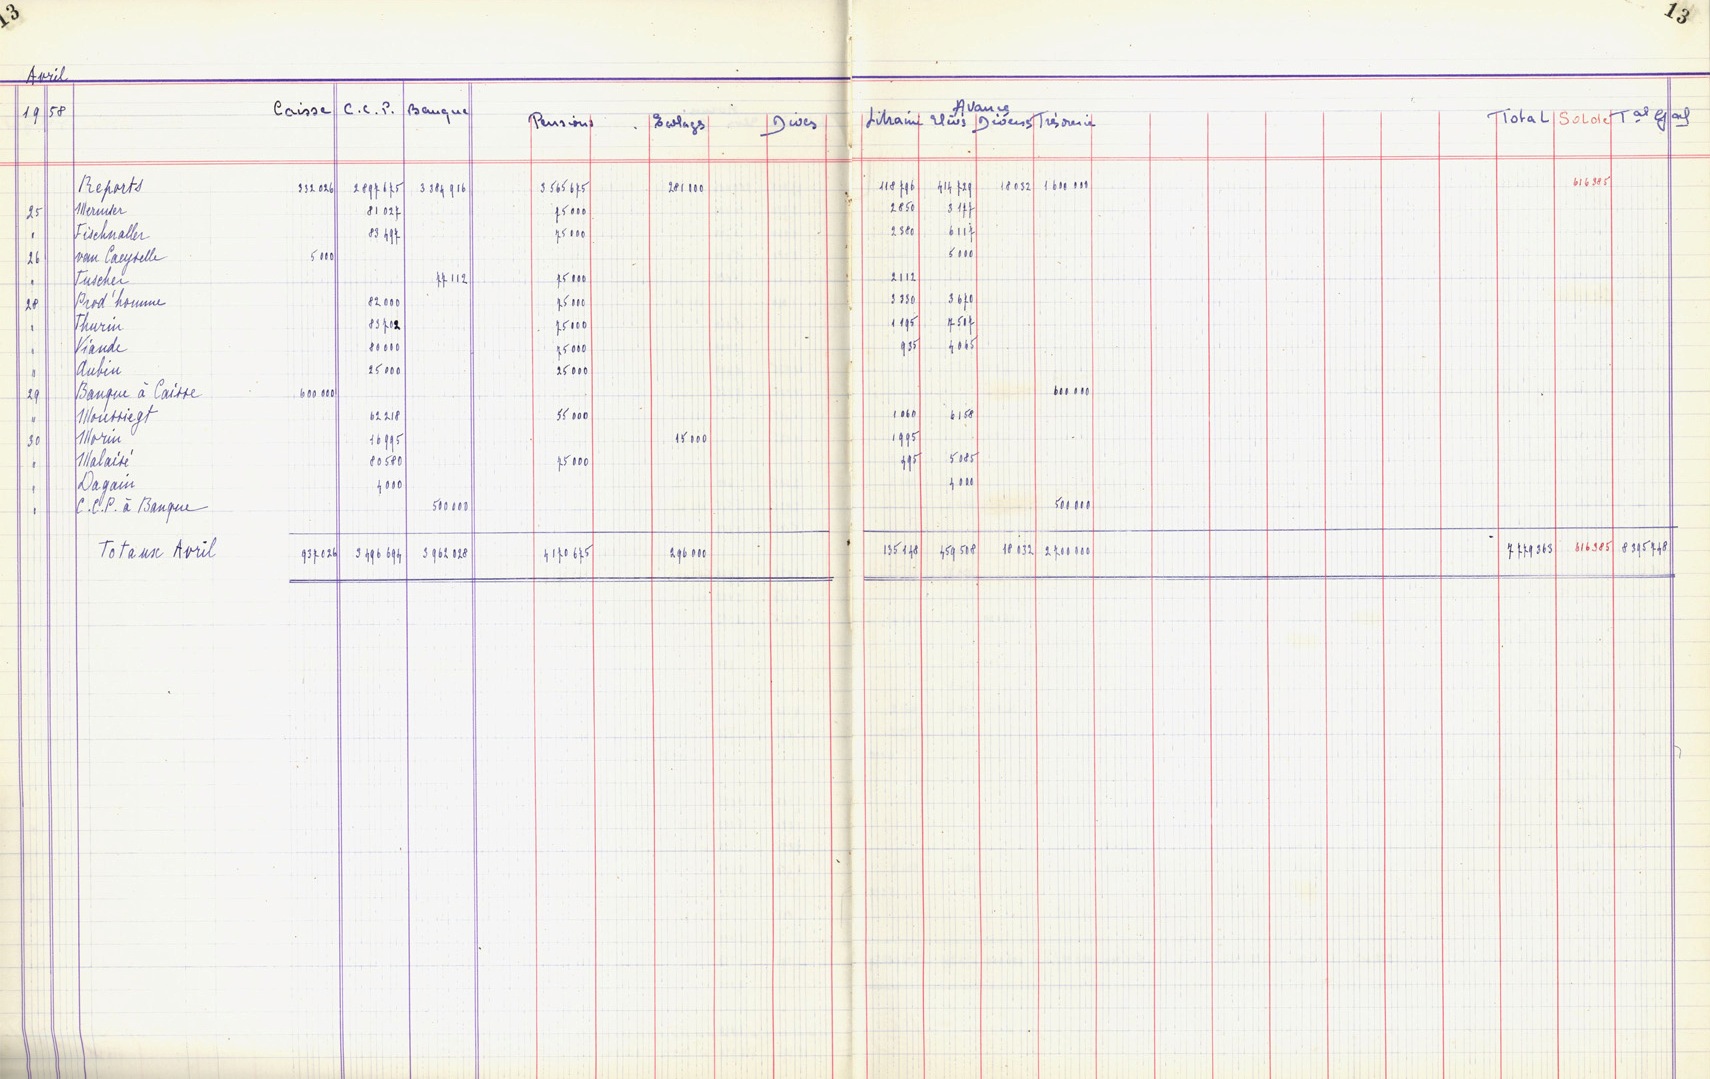 13
13
Avril
19 58 Caisse C.C.P. Banque Pensions Scolages Divers Libraire Avance Elèves Divers Trésorerie Total Solde Tal Gal
Reports 332 026 2 897 675 3 384 916 3 565 675 281 000 118 796 414 729 18 032 1 600 000 616 385
25 Meunier 81 027 75 000 2 850 3 177
" Fischnaller 83 497 75 000 2 380 6 117
26 van Caeyselle 5 000 5 000
" Fuscher 77 112 75 000 2 112
28 Prod'homme 82 000 75 000 3 330 3 670
" Thurin 83 702 75 000 1 195 7 507
" Viande 80 000 75 000 935 4 065
" Aubin 25 000 25 000
29 Banque à Caisse 600 000 600 000
" Moussiegt 62 218 55 000 1 060 6 158
30 Morin 16 995 15 000 1 995
" Malaisé 80 580 75 000 495 5 085
" Dagain 4 000 4 000
" C.C.P. à Banque 500 000 500 000
Totaux Avril 937 026 3 496 694 3 962 028 4 170 675 296 000 135 148 459 508 18 032 2 700 000 7 779 363 616 385 8 395 748